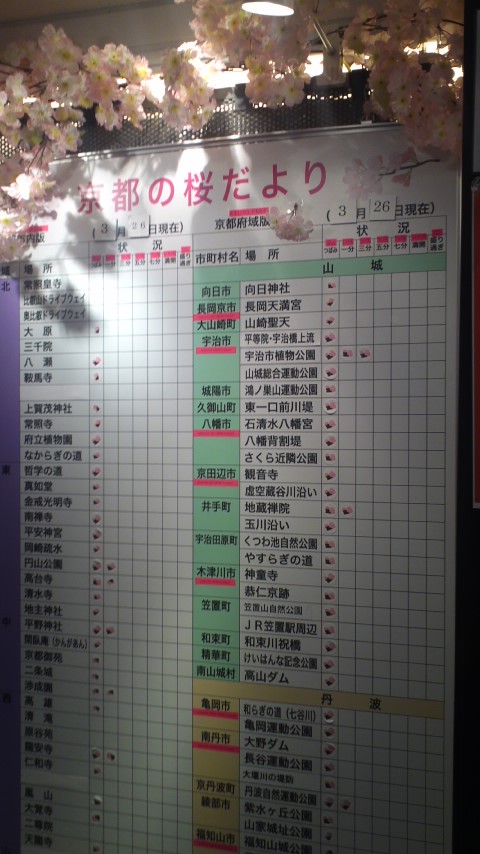 京都の桜だより
内版
(3月26日現在)
京都府域版
(3月26日現在)
場所
状況
つぼみ 一分 三分 五分 七分 満開 盛り過ぎ
市町村名 場所
状況
つぼみ 一分 三分 五分 七分 満開 盛り過ぎ
北
常照皇寺
比叡山ドライブウェイ
奥比叡ドライブウェイ
大原
三千院
八瀬
鞍馬寺
上賀茂神社
常照寺
府立植物園
なからぎの道
東
哲学の道
真如堂
金戒光明寺
南禅寺
平安神宮
岡崎疏水
円山公園
高台寺
清水寺
地主神社
中
平野神社
閑臥庵(かんがあん)
京都御苑
二条城
渉成園
西
高雄
清滝
原谷苑
龍安寺
仁和寺
嵐山
大覚寺
二尊院
天龍寺
山城
向日市 向日神社
長岡京市 長岡天満宮
大山崎町 山崎聖天
宇治市 平等院・宇治橋上流
宇治市植物公園
山城総合運動公園
城陽市 鴻ノ巣山運動公園
久御山町 東一口前川堤
八幡市 石清水八幡宮
八幡背割堤
さくら近隣公園
京田辺市 観音寺
虚空蔵谷川沿い
井手町 地蔵禅院
玉川沿い
宇治田原町 くつわ池自然公園
やすらぎの道
木津川市 神童寺
恭仁京跡
笠置町 笠置山自然公園
JR笠置駅周辺
和束町 和束川祝橋
精華町 けいはんな記念公園
南山城村 高山ダム
丹波
亀岡市 和らぎの道(七谷川)
亀岡運動公園
南丹市 大野ダム
長谷運動公園
大堰川の堤防
京丹波町 丹波自然運動公園
綾部市 紫水ヶ丘公園
山家城址公園
福知山市 福知山城公園